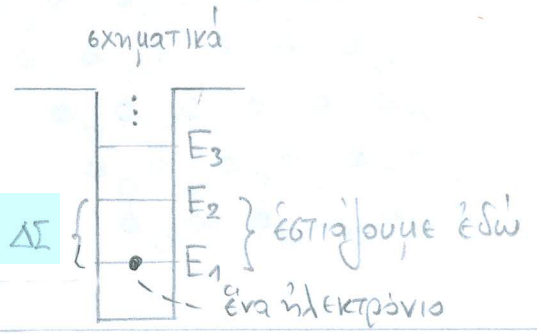 σχηματικά
E₃
E₂
ΔΣ
ἑστιάζουμε ἐδώ
E₁
ἕνα ἠλεκτρόνιο